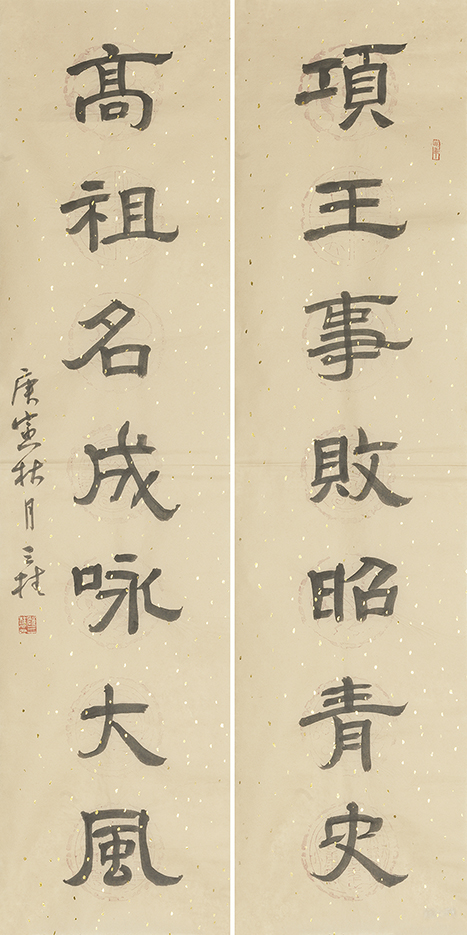 項王事敗昭青史
髙祖名成咏大風
庚寅秋月三桂